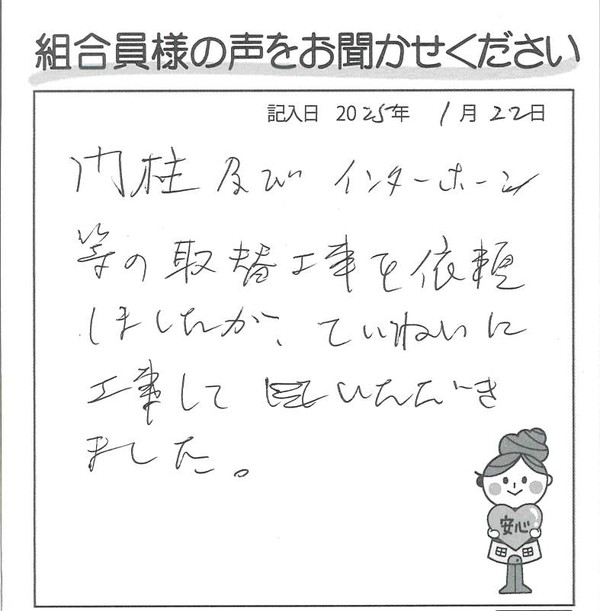 組合員様の声をお聞かせください
記入日 2025年 1月22日
門柱及びインターホーン
等の取替工事を依頼
しましたが、ていねいに
工事していただき
ました。
安心